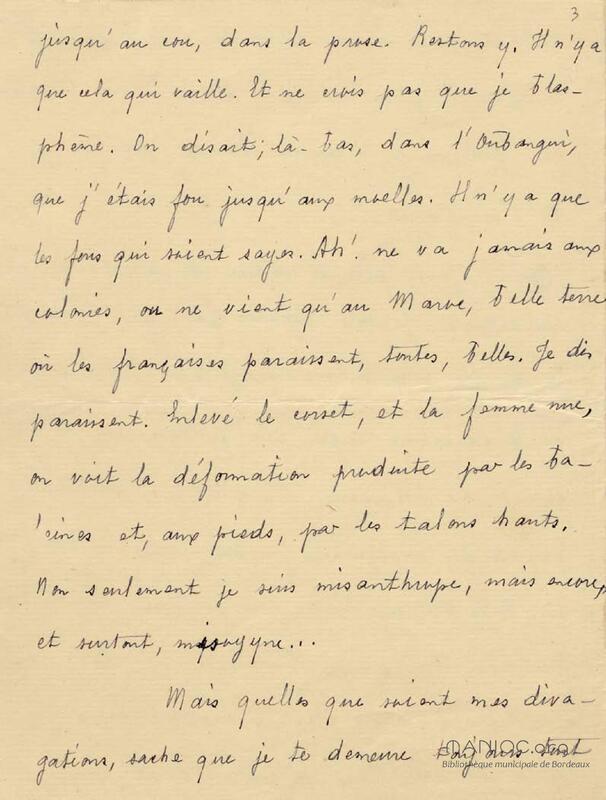 3
jusqu'au cou, dans la prose. Restons y. Il n'y a
que cela qui vaille. Et ne crois pas que je blas-
phème. On disait, là-bas, dans l'Oubangui,
que j'étais fou jusqu'aux moelles. Il n'y a que
les fous qui soient sages. Ah! ne va jamais aux
colonies, ou ne vient qu'au Maroc, belle terre
où les françaises paraissent, toutes, belles. Je dis
paraissent. Enlevé le corset, et la femme nue,
on voit la déformation produite par les ba-
leines et, aux pieds, par les talons hauts.
Non seulement je suis misanthrope, mais encore,
et surtout, misogyne...
Mais quelles que soient mes diva-
gations, sache que je te demeure toujours tout
MANIOC.org
Bibliothèque municipale de Bordeaux